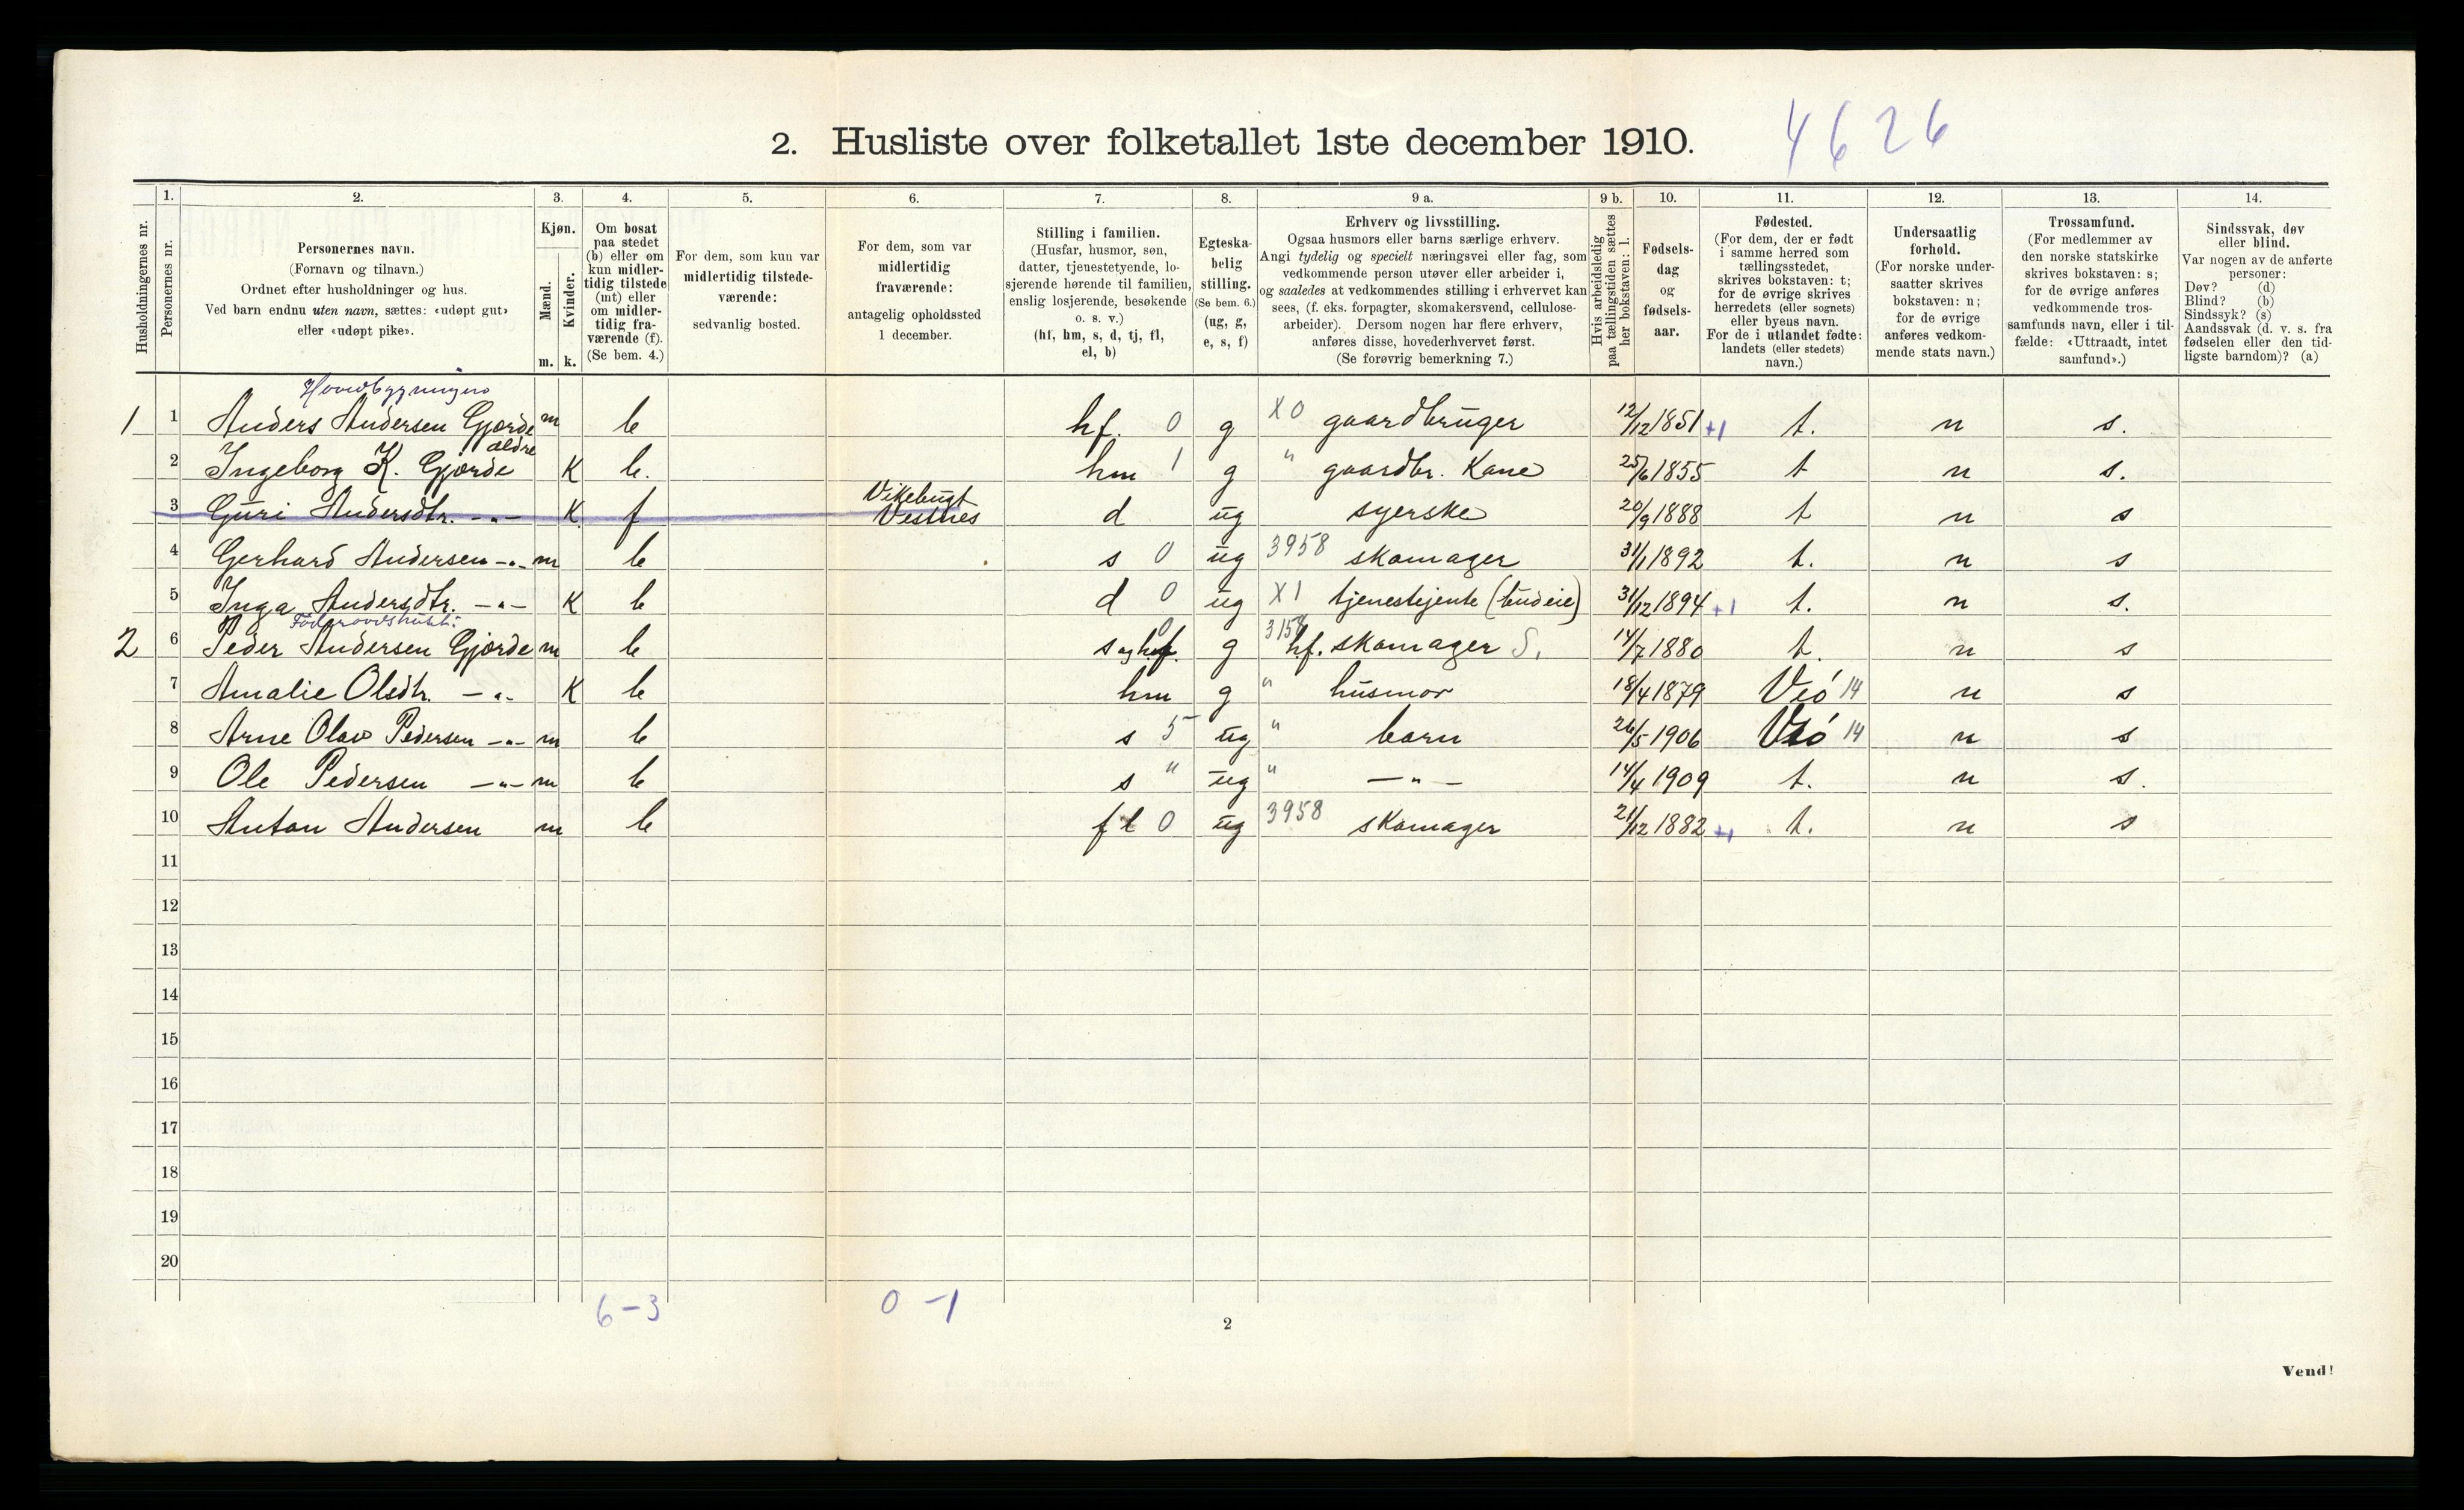 2. Husliste over folketallet 1ste december 1910. 4626
1. 2. 3. 4. 5. 6. 7. 8. 9 a. 9 b. 10. 11. 12. 13. 14.
Husholdningernes nr.
Personernes nr.
Personernes navn.
(Fornavn og tilnavn.)
Ordnet efter husholdninger og hus.
Ved barn endnu uten navn, sættes: «udøpt gut»
eller «udøpt pike».
Kjøn.
Mænd.
Kvinder.
m. k.
Om bosat
paa stedet
(b) eller om
kun midler-
tidig tilstede
(mt) eller
om midler-
tidig fra-
værende (f).
(Se bem. 4.)
For dem, som kun var
midlertidig tilstede-
værende:
sedvanlig bosted.
For dem, som var
midlertidig
fraværende:
antagelig opholdssted
1 december.
Stilling i familien.
(Husfar, husmor, søn,
datter, tjenestetyende, lo-
sjerende hørende til familien,
enslig losjerende, besøkende
o. s. v.)
(hf, hm, s, d, tj, fl,
el, b)
Egteska-
belig
stilling.
(Se bem. 6.)
(ug, g,
e, s, f)
Erhverv og livsstilling.
Ogsaa husmors eller barns særlige erhverv.
Angi tydelig og specielt næringsvei eller fag, som
vedkommende person utøver eller arbeider i,
og saaledes at vedkommendes stilling i erhvervet kan
sees, (f. eks. forpagter, skomakersvend, cellulose-
arbeider). Dersom nogen har flere erhverv,
anføres disse, hovederhvervet først.
(Se forøvrig bemerkning 7.)
Hvis arbeidsledig
paa tællingstiden sættes
her bokstaven: l.
Fødsels-
dag
og
fødsels-
aar.
Fødested.
(For dem, der er født
i samme herred som
tællingsstedet,
skrives bokstaven: t;
for de øvrige skrives
herredets (eller sognets)
eller byens navn.
For de i utlandet fødte:
landets (eller stedets)
navn.)
Undersaatlig
forhold.
(For norske under-
saatter skrives
bokstaven: n;
for de øvrige
anføres vedkom-
mende stats navn.)
Trossamfund.
(For medlemmer av
den norske statskirke
skrives bokstaven: s;
for de øvrige anføres
vedkommende tros-
samfunds navn, eller i til-
fælde: «Uttraadt, intet
samfund».)
Sindssvak, døv
eller blind.
Var nogen av de anførte
personer:
Døv? (d)
Blind? (b)
Sindssyk? (s)
Aandssvak (d. v. s. fra
fødselen eller den tid-
ligste barndom)? (a)
Hovedbygningen
1 1 Anders Andersen Gjørde m b hf. 0 g X0 gaardbruger 12/12 1851 +1 t. n s.
ældre
2 Ingeborg K. Gjørde K b. hm 1 g " gaardbr. Kone 25/6 1855 t n s.
Vikebugt
3 Guri Andersdtr. -"- K f Vestnes d ug syerske 20/9 1888 t n s
4 Gerhard Andersen -"- m b s 0 ug 3958 skomager 31/1 1892 t. n s
5 Inga Andersdtr. -"- K b d 0 ug X1 tjenestejente (budeie) 31/12 1894 +1 t. n s.
2 6 Peder Andersen Gjørde m b s og hf. 0 g 3158 hf. skomager S. 14/7 1880 t. n s
7 Amalie Olsdtr. -"- K b hm g " husmor 18/4 1879 Veö 14 n s
8 Arne Olav Pedersen -"- m b s 5 ug " barn 26/5 1906 Veö 14 n s
9 Ole Pedersen -"- m b s " ug " -"- 14/4 1909 t. n s.
10 Anton Andersen m b fl 0 ug 3958 skomager 21/12 1882 +1 t. n s
11
12
13
14
15
16
17
18
19
20
6-3 0-1
2
Vend!